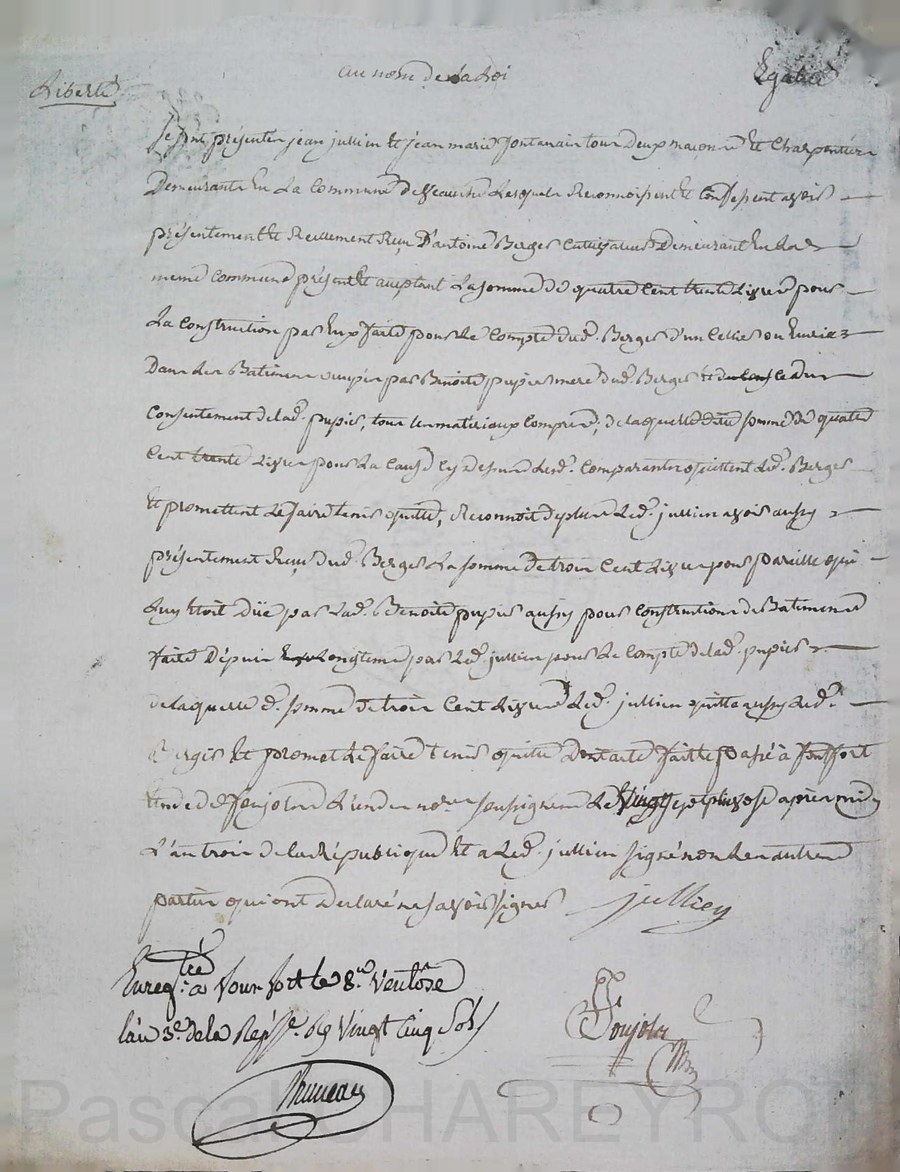 au nom de la Loi
Liberté Egalité
Se sont présentés jean jullien Et jean marie fontanai tous deux maçons Et Charpentiers
Demeurants En La Commune de Veauche Lesquels Reconnoissent Et Confessent avoir
présentement Et Reellement Reçu D'antoine Berger Cultivateur Demeurant En La
meme Commune présent Et acceptant La somme de quatre Cent trente Livres pour
La Construction par Eux faite pour Le Compte dud. Berger d'un Cellier ou
Dans Les Batimens occupés par Benoite pupier mere dud. Berger
Consentement de lad. pupier, tous Les matériaux Compris, de laquelle dite somme de quatre
Cent trente Livres pour La Cause Cy dessus Lesd. Comparants quittent Led. Berger
Et promettent Le faire tenir quitte, Reconnoit de plus Led. jullien avoir aussy
présentement Reçu dud. Berger La somme de trois Cent Livres pour pareille qui
Luy Etoit Düe par Lad. Benoite pupier aussy pour Constructions de Batimens
faite Dépuis Longtems par Led. jullien pour Le Compte de lad. pupier
de laquelle d. somme de trois Cent Livres Led. jullien quitte aussy Led.
Berger Et promet Le faire tenir quitte Dont acte fait Et passé à fonfort
Etude de Ponjolar L'un des not. soussignés Le Vingt sept pluviose après midy
L'an trois de la République Et a Led. jullien signé non Les autres
parties qui ont Declaré ne savoir signer jullien
Enreg.tré à fonfort le 8.e Ventôse
l'an 3.e de la Rép. Vingt Cinq Sols
Pascal CHAREYRON